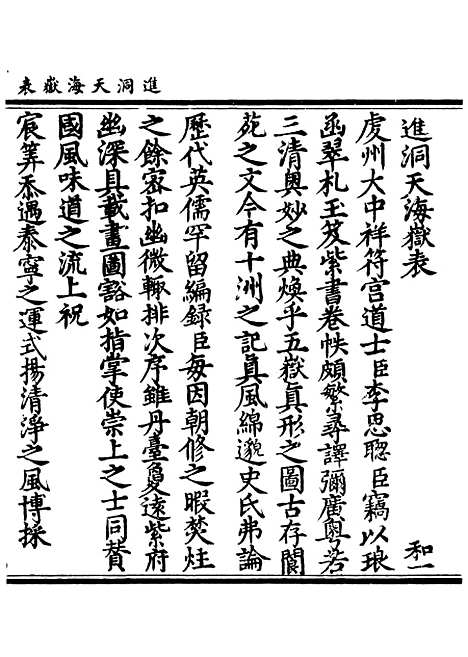 進洞天海嶽表
進洞天海嶽表　和一
虔州大中祥符宫道士臣李思聰臣竊以琅
函翠札玉笈紫書卷帙頗繁尋譯彌廣奥若
三清奥妙之典焕乎五嶽真形之圖古存閬
苑之文今有十洲之記真風綿邈史氏弗論
歷代英儒罕留編録臣每因朝修之暇焚炷
之餘宻扣幽微輙排次序雖丹臺夐遠紫府
幽深具載畫圖豁如指掌使崇上之士同賛
國風味道之流上祝
宸筭忝遇泰寧之運式揚清淨之風博採